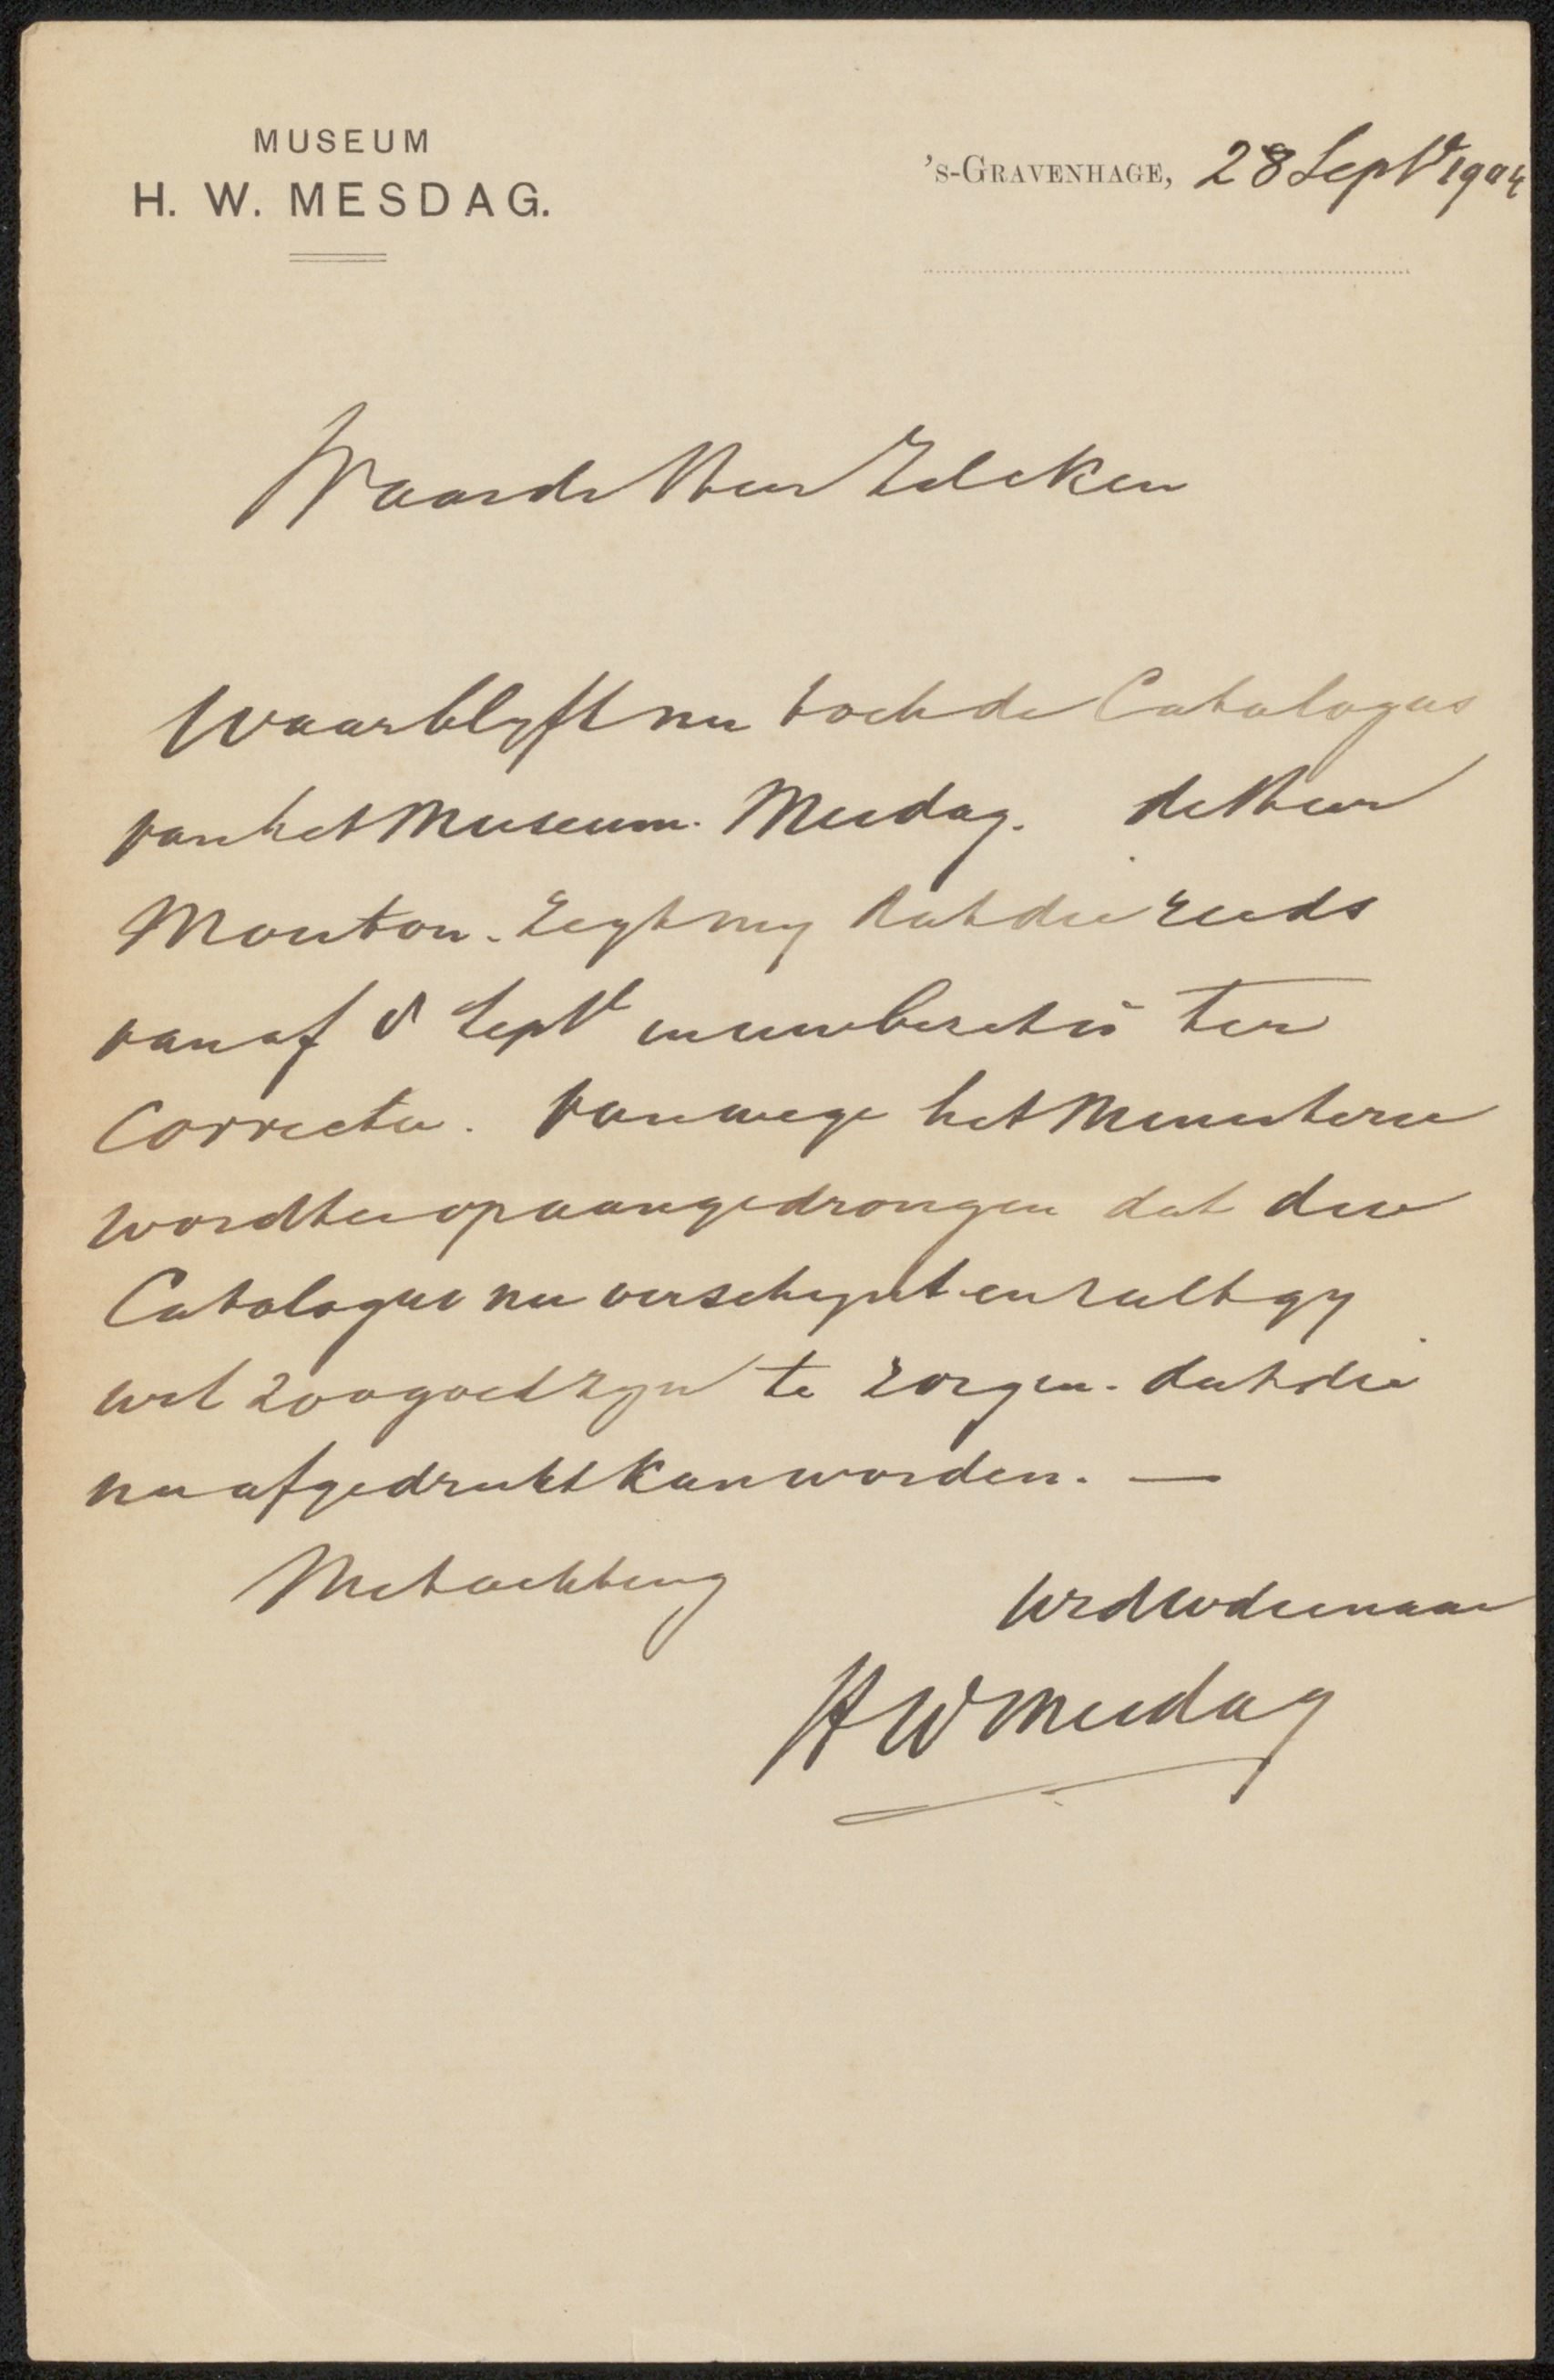 MUSEUM
H. W. MESDAG.
's-GRAVENHAGE, 28 Sept 1904
Waarde Heer Zilcken
Waar blyft nu toch de Catalogus
van het Museum Mesdag. de Heer
Mouton zegt my dat die reeds
vanaf 8 Sept in uw bezit is ter
Correctie. Vanwege het Ministerie
wordt er op aangedrongen dat die
Catalogus nu verschynt en zult gy
wel zoo goed zyn te zorgen dat die
nu afgedrukt kan worden. —
Met achting
Uw dw dienaar
HW Mesdag